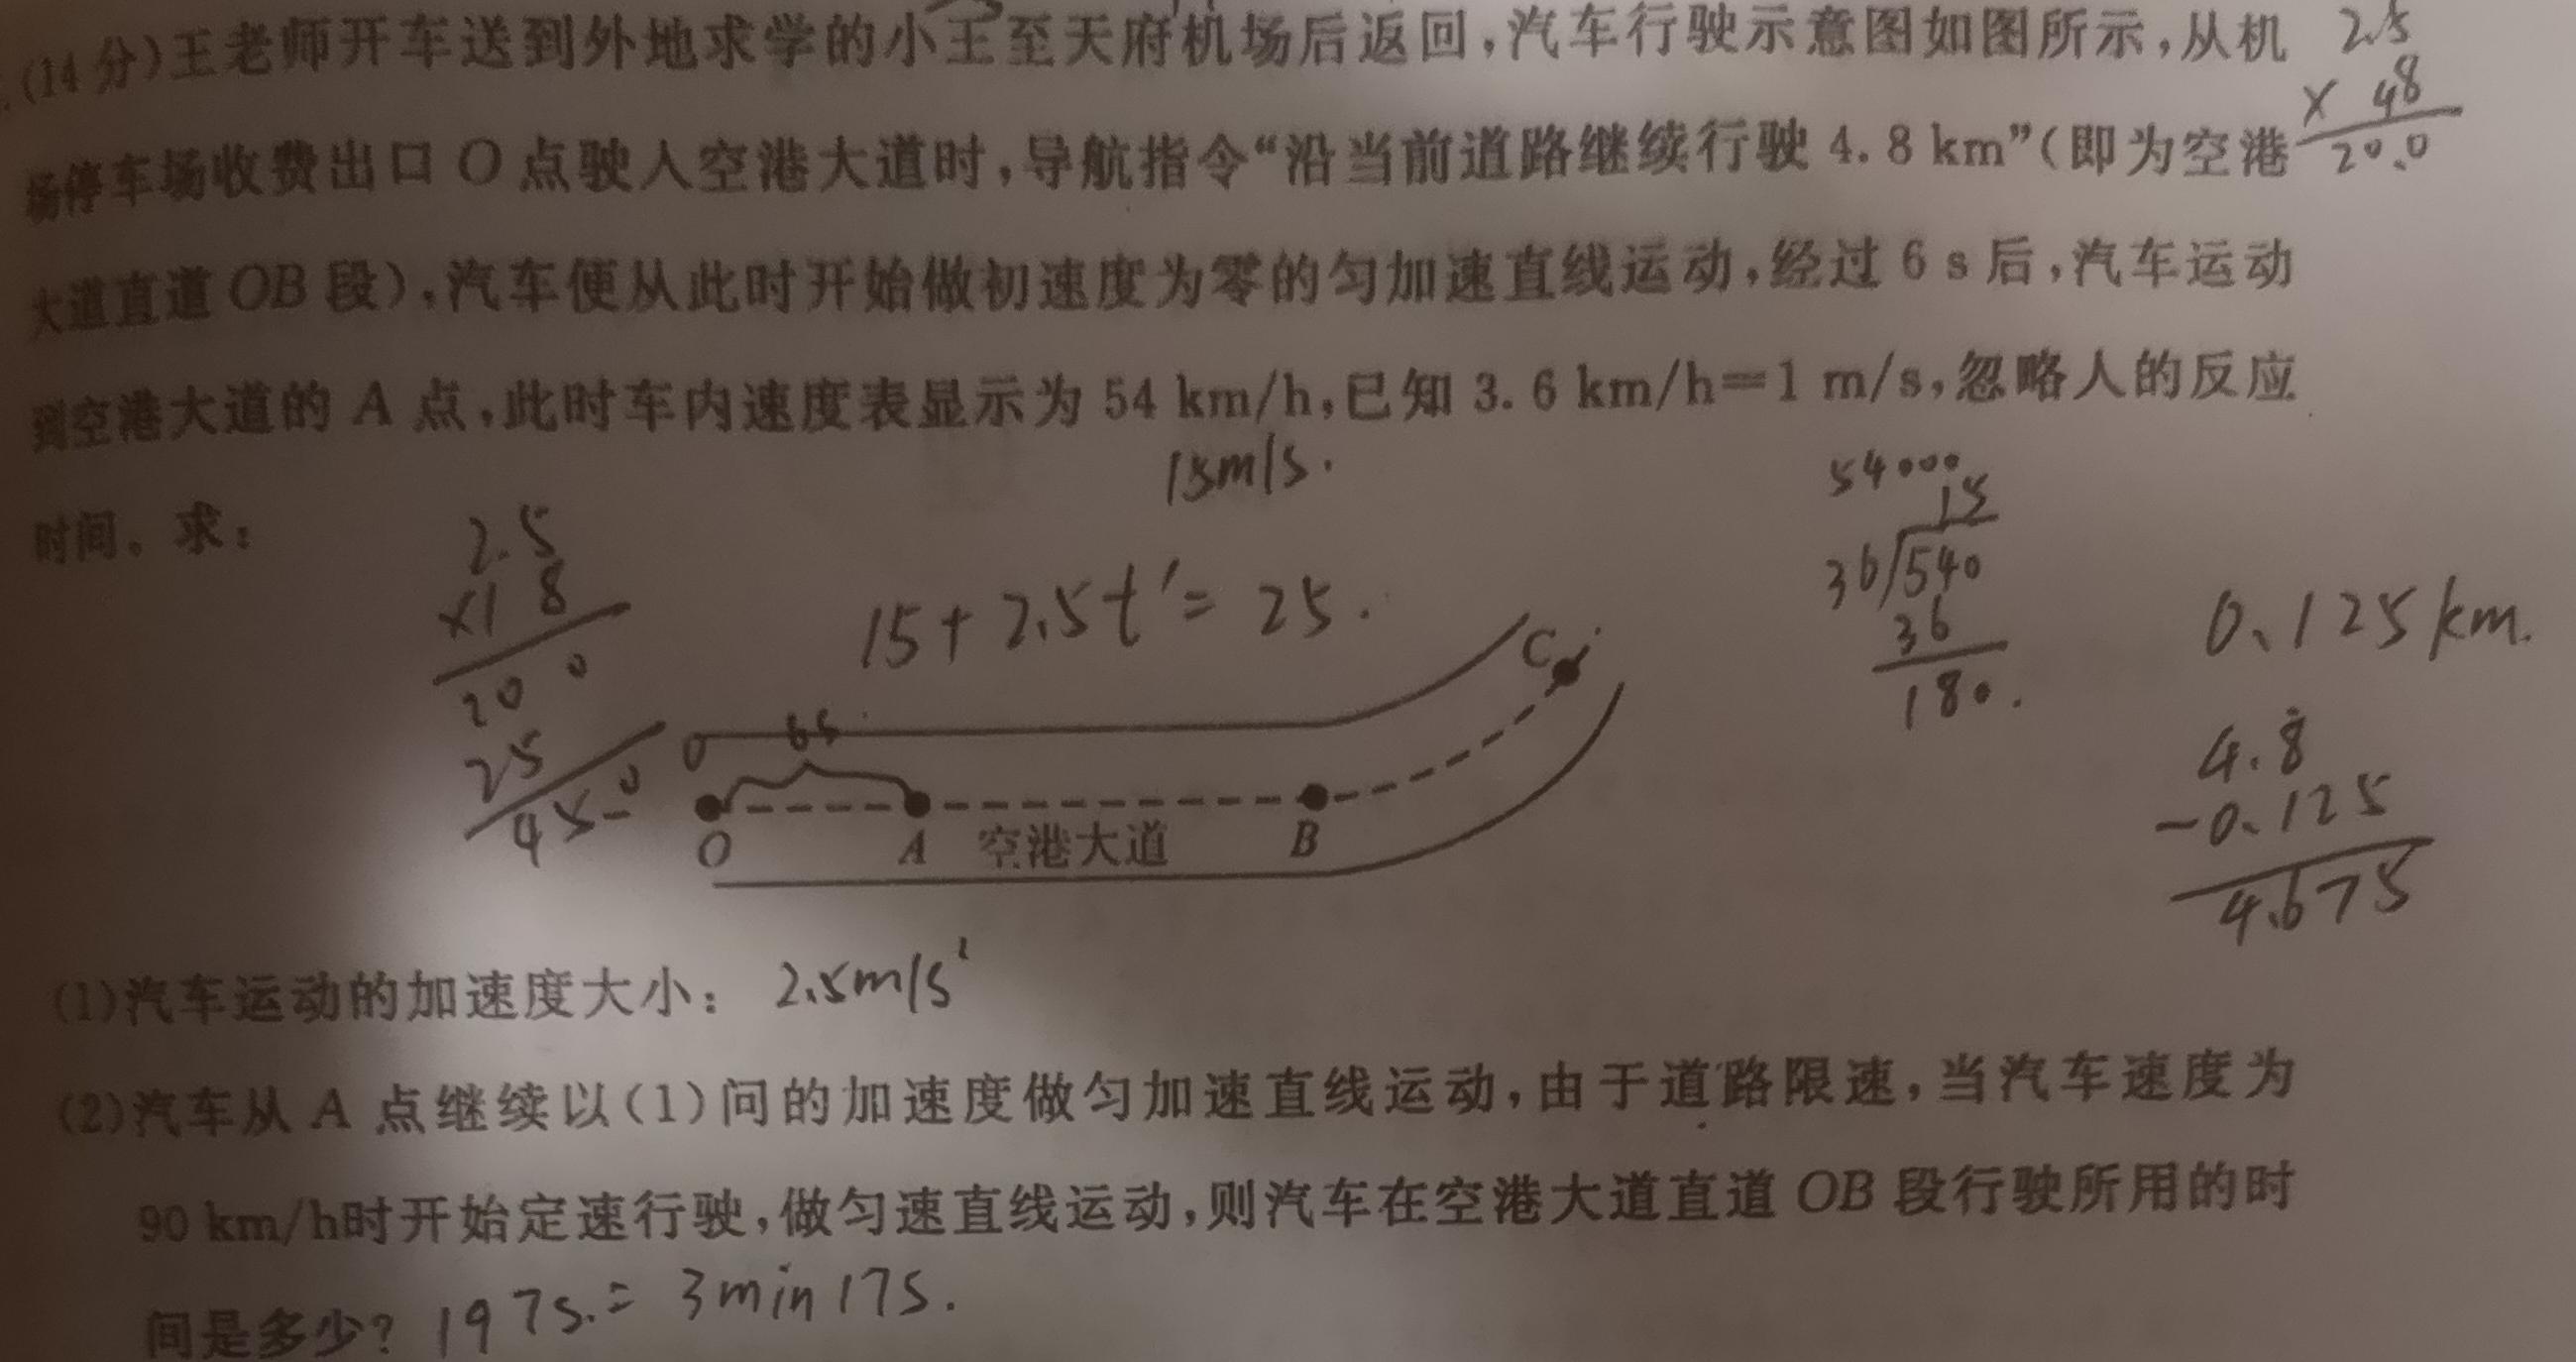 (14分)王老师开车送到外地求学的小王至天府机场后返回,汽车行驶示意图如图所示,从机
场停车场收费出口 O 点驶入空港大道时,导航指令“沿当前道路继续行驶 4.8 km”(即为空港
大道直道 OB 段),汽车便从此时开始做初速度为零的匀加速直线运动,经过 6 s 后,汽车运动
到空港大道的 A 点,此时车内速度表显示为 54 km/h,已知 3.6 km/h=1 m/s,忽略人的反应
时间。求:
2.5
× 48
20.0
15m/s.
54000
15
36/540
36
180.
2.5
×1 8
20 0
25
45.0
15+2.5t′=25.
0.125km.
4.8
-0.125
4.675
0
6s
C
O
A
空港大道
B
(1)汽车运动的加速度大小; 2.5m/s²
(2)汽车从 A 点继续以(1)问的加速度做匀加速直线运动,由于道路限速,当汽车速度为
90 km/h时开始定速行驶,做匀速直线运动,则汽车在空港大道直道 OB 段行驶所用的时
间是多少? 197s.= 3min17s.